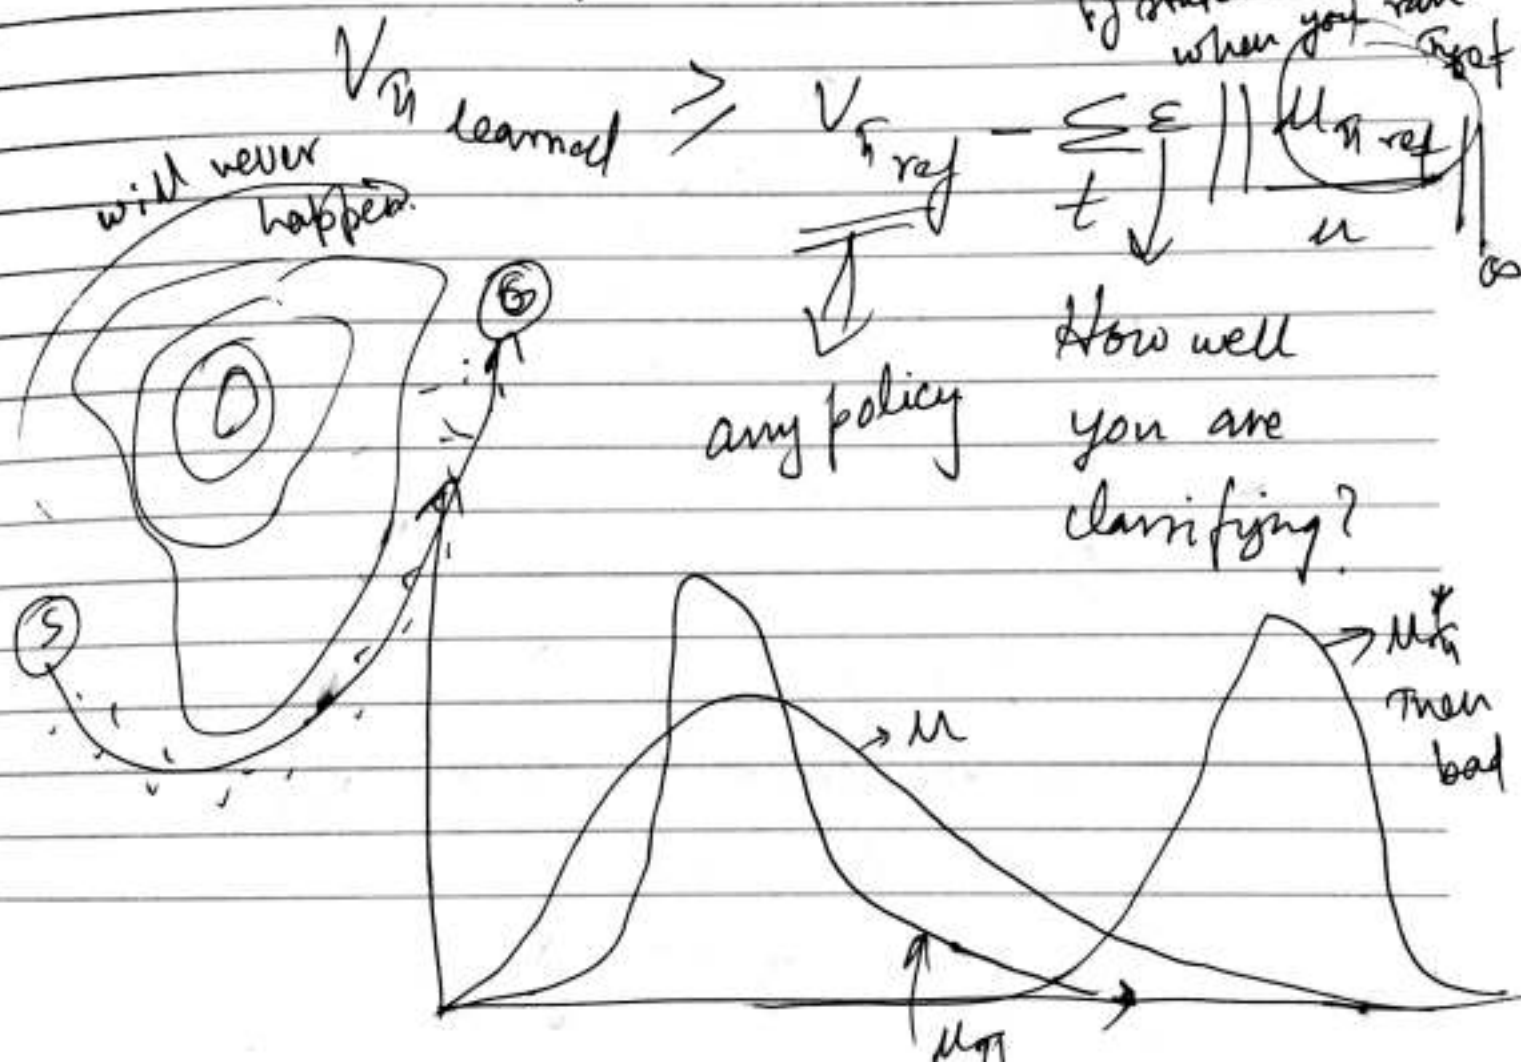 when you run
π ref
V π learned ≥ V π ref - Σ t ε || μ π ref / μ || ∞
will never
happen.
G
any policy
How well
you are
classifying?
S
μ π*
Then
bad
μ
μ π